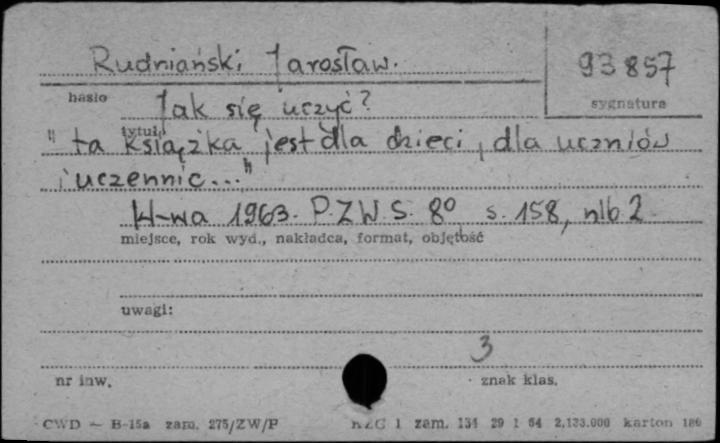 Rudniański Jarosław. 93857
hasło sygnatura
Jak się uczyć?
tytuł
"ta książka jest dla dzieci, dla uczniów
i uczennic..."
W-wa 1963. P.Z.W.S. 8° s. 158, nlb 2
miejsce, rok wyd., nakładca, format, objętość
uwagi:
3
nr inw. znak klas.
CWD — B-15a zam. 275/ZW/P KZG 1 zam. 134 29 1 64 2,133.000 karton 180